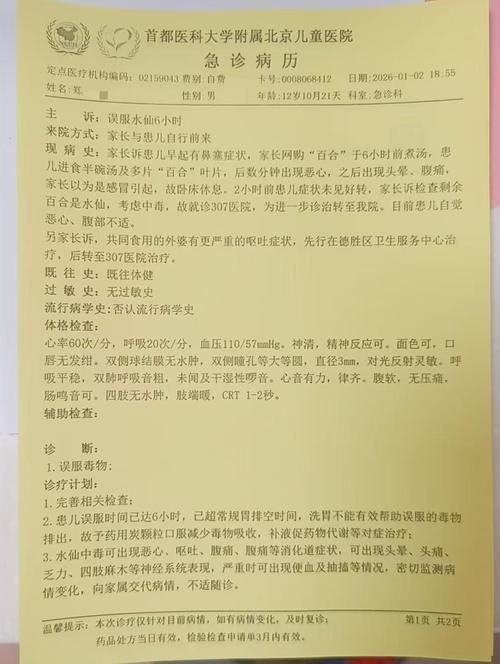 首都医科大学附属北京儿童医院
急诊病历
定点医疗机构编码: 02159043 费别:自费 卡号:0008068412 日期:2026-01-02 18:55
姓名:郑 性别:男 年龄:12岁10月21天 科室:急诊科
主 诉: 误服水仙6小时
来院方式: 家长与患儿自行前来
现 病 史: 家长诉患儿早起有鼻塞症状，家长网购“百合”于6小时前煮汤，患
儿进食半碗汤及多片“百合”叶片，后数分钟出现恶心、之后出现头晕、腹痛，
家长以为是感冒引起，故卧床休息。2小时前患儿症状未见好转，家长诉检查剩余
百合是水仙，考虑中毒，故就诊307医院，为进一步诊治转至我院。目前患儿自觉
恶心、腹部不适。
另家长诉，共同食用的外婆有更严重的呕吐症状，先行在德胜区卫生服务中心治
疗，后转至307医院治疗。
既 往 史: 既往体健
过 敏 史: 无过敏史
流行病学史:否认流行病学史
体格检查:
心率60次/分，呼吸20次/分，血压110/57mmHg。神清，精神反应可。面色可。口
唇无发绀。双侧球结膜无水肿，双侧瞳孔等大等圆，直径3mm，对光反射灵敏。呼
吸平稳，双肺呼吸音粗，未闻及干湿性啰音。心音有力，律齐。腹软，无压痛，
肠鸣音可。四肢无水肿，肢端暖，CRT 1-2秒。
辅助检查:
诊 断:
1.误服毒物;
诊疗计划:
1.完善相关检查;
2.患儿误服时间已达6小时，已超常规胃排空时间，洗胃不能有效帮助误服的毒物
排出，故予药用炭颗粒口服减少毒物吸收，补液促药物代谢等对症治疗;
3.水仙中毒可出现恶心、呕吐、腹痛、腹痛等消化道症状，可出现头晕、头痛、
乏力、四肢麻木等神经系统表现，严重时可出现便血及抽搐等情况，密切监测病
情变化，向家属交代病情，不适随诊。
温馨提示: 本次诊疗仅针对目前病情，如有病情变化，及时复诊; 第1页 共2页
药品处方当日有效，检验检查申请单3月内有效。